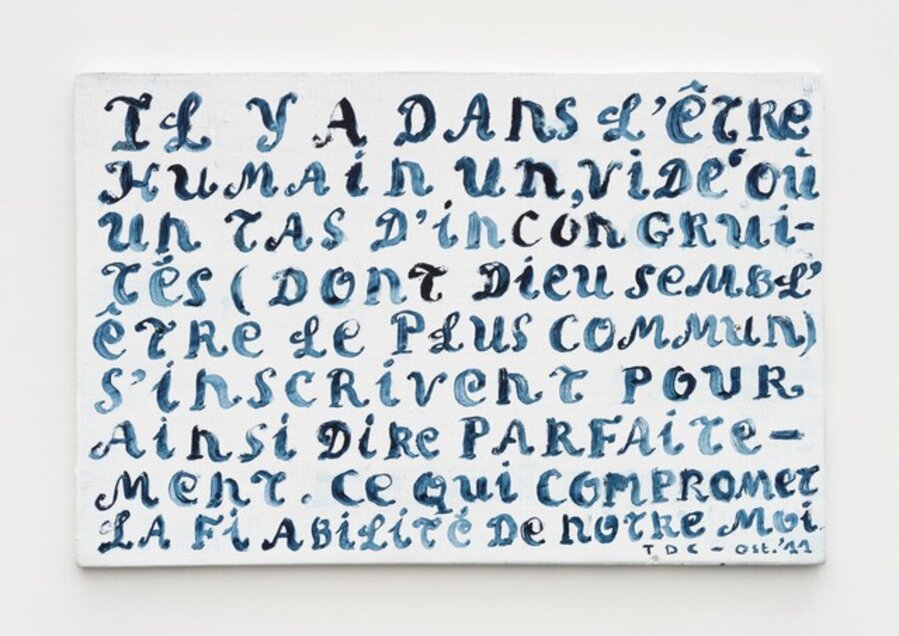 IL Y A DANS L'ÊTRE
HUMAIN UN VIDE OÙ
UN TAS D'INCONGRUI-
TÉS (DONT DIEU SEMBL'
ÊTRE LE PLUS COMMUN)
S'INSCRIVENT POUR
AINSI DIRE PARFAITE-
MENT. CE QUI COMPROMET
LA FIABILITÉ DE NOTRE MOI
TDC - OST.'11